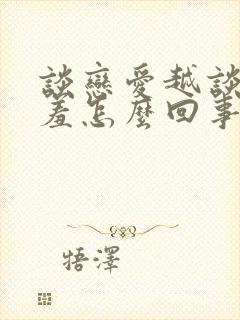 談戀愛越談
羞怎麼回事
牾澤